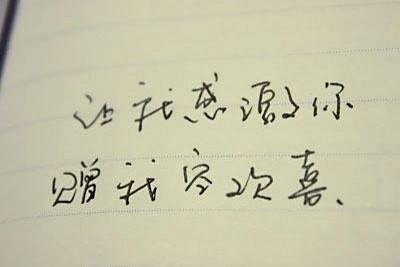 让我感激你
赠我空欢喜、